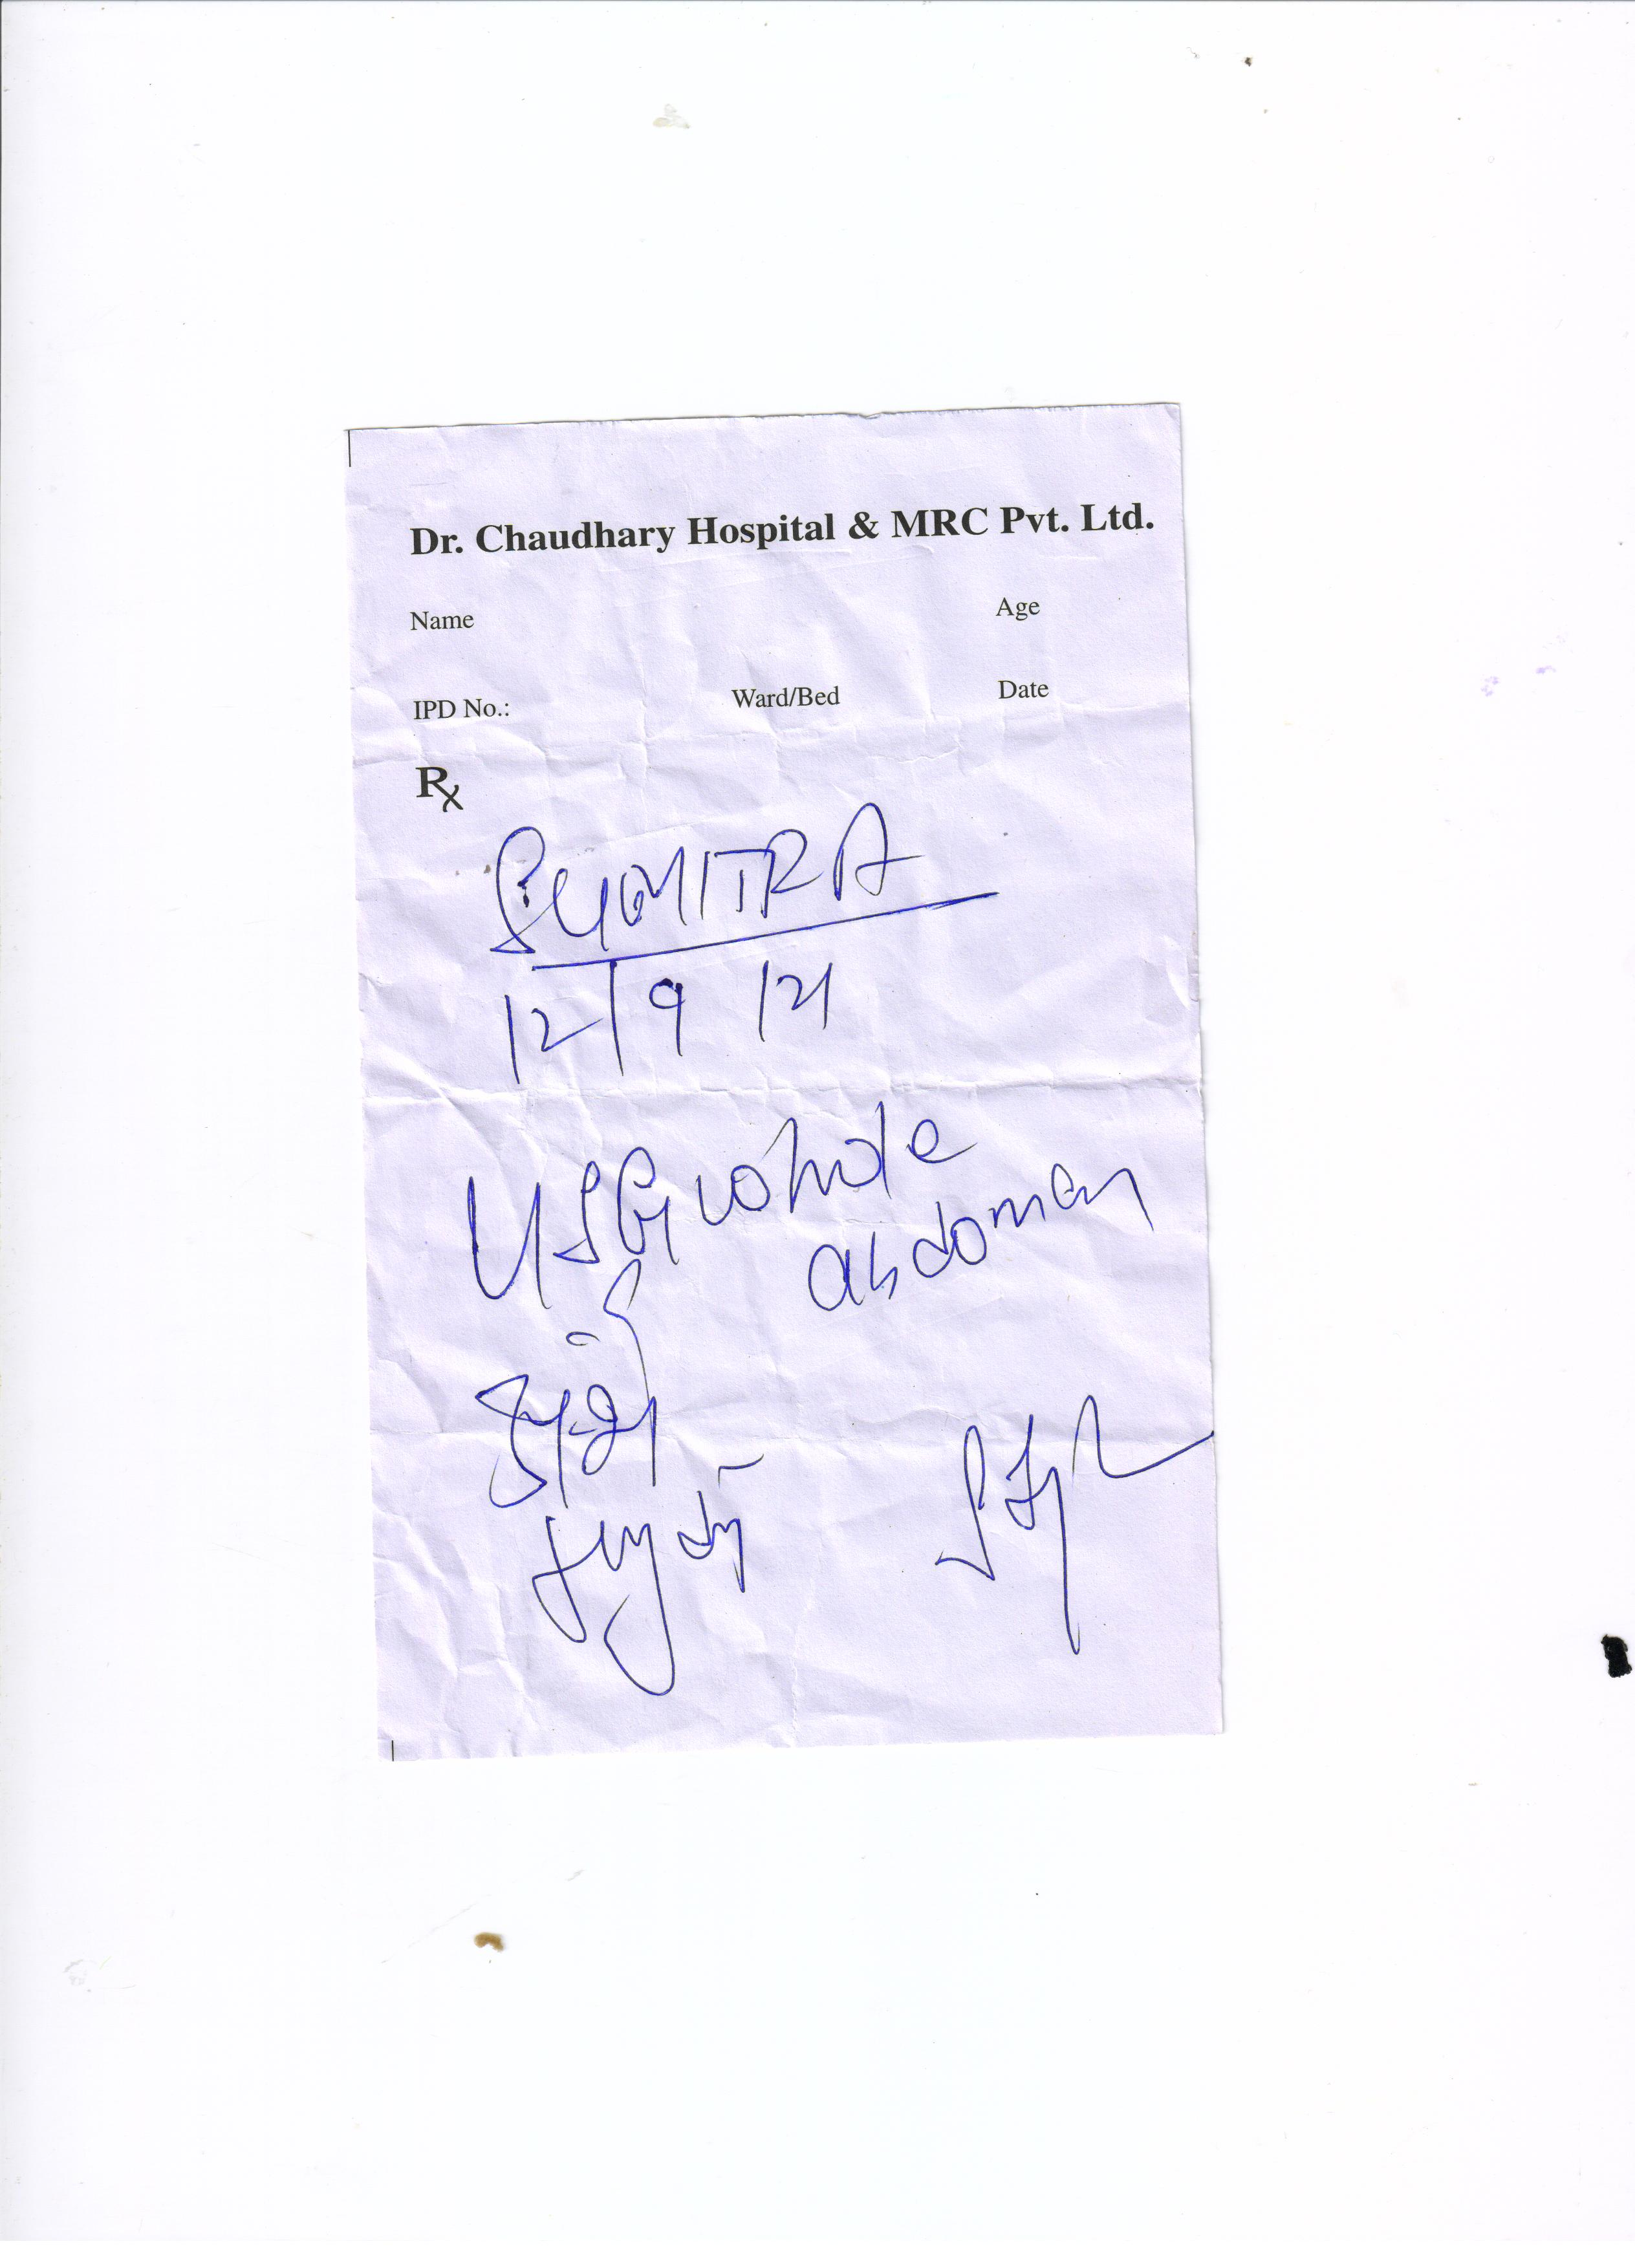 Dr. Chaudhary Hospital & MRC Pvt. Ltd.
Name Age
IPD No.: Ward/Bed Date
Rx
SUMITRA
12/9/21
USG whole
abdomen